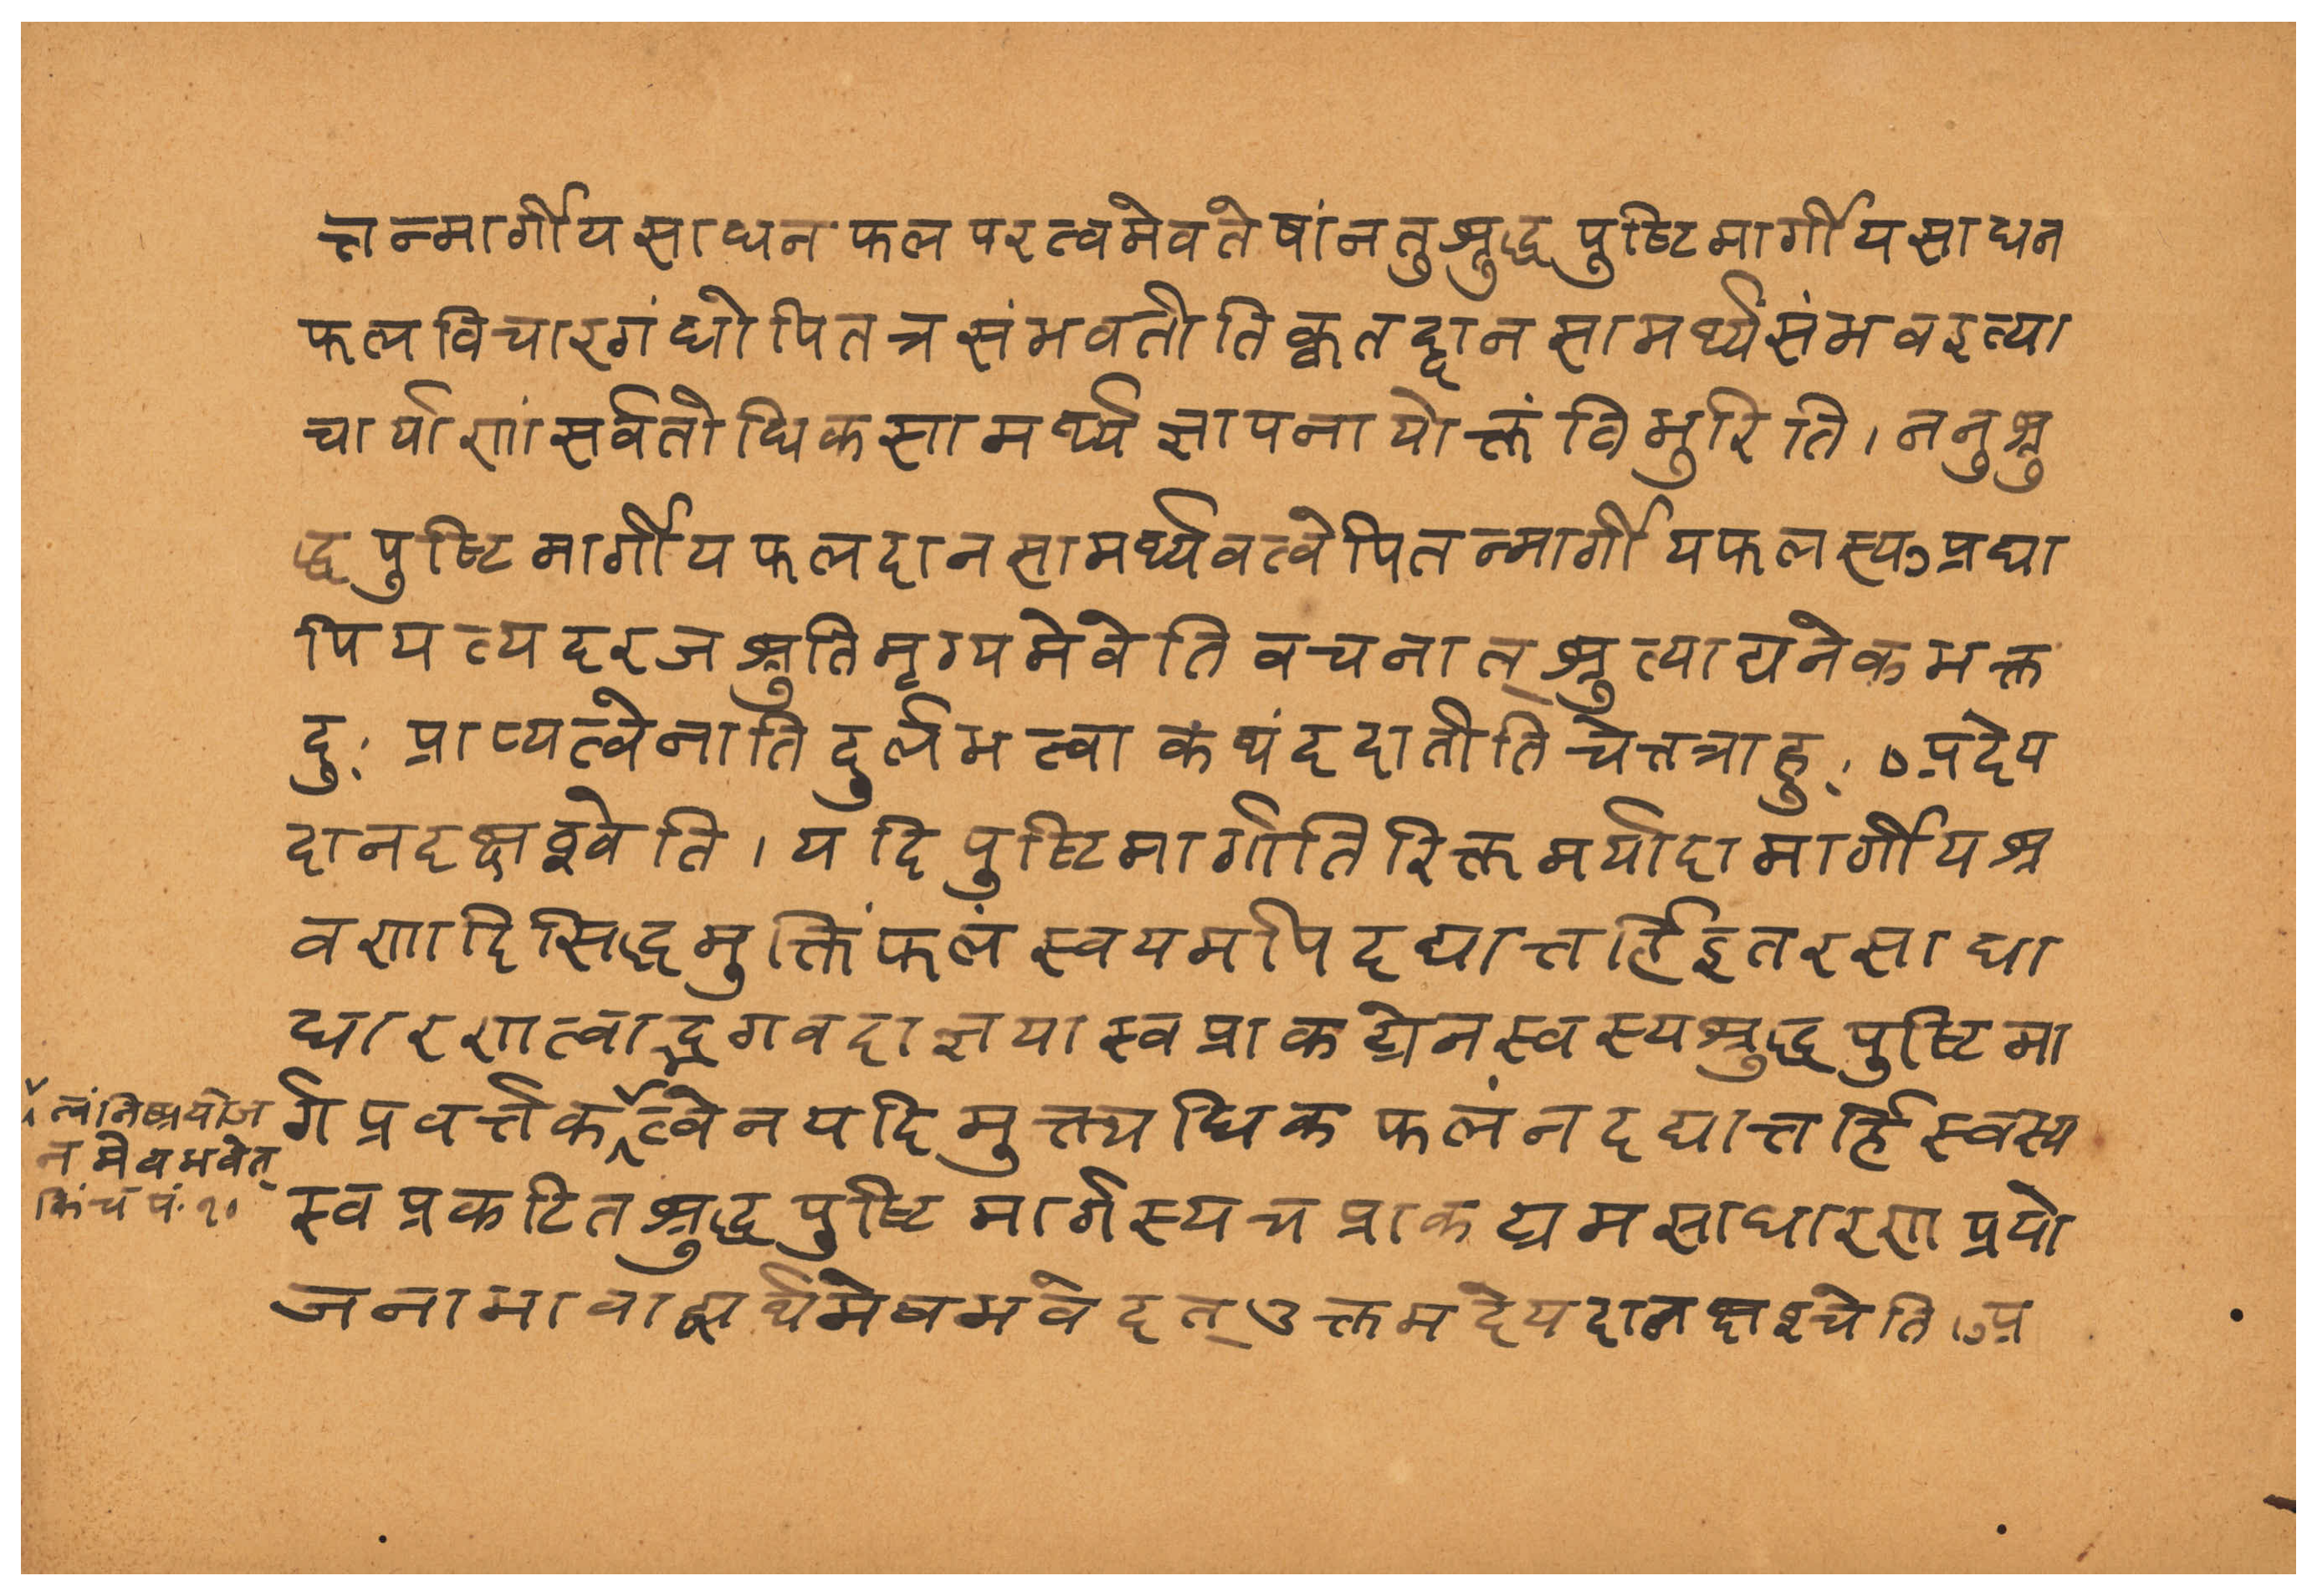 त्तन्मार्गीयसाधनफलपरत्वमेवतेषांनतुश्रुद्धपुष्टिमार्गीयसाधन
फलविचारगंधोपितत्रसंभवतीतिक्वतद्दानसामर्थ्यसंभवइत्या
चार्याणांसर्वतोधिकसामर्थ्यज्ञापनायोक्तंविभुरिति।ननुश्रु
द्धपुष्टिमार्गीयफलदानसामर्थ्यवत्वेपितन्मार्गीयफलस्यऽप्रघा
पियत्यदरजश्रुतिमृग्यमेवेतिवचनात्श्रुत्याद्यनेकभक्त
दुःप्राप्यत्वेनातिदुर्लभत्वाकथंददातीतिचेत्तत्राहुः०प्रदेय
दानदक्षश्वेति।यदिपुष्टिमार्गातिरिक्तमर्यादामार्गीयश्र
वणादिसिद्धमुक्तिंफलंस्वयमपिदद्यात्तर्हिइतरसाधा
धारणत्वाद्भगवदाज्ञयास्वप्राकट्येनस्वस्यश्रुद्धपुष्टिमा
र्गप्रवर्त्तकत्वेनयदिमुक्त्यधिकफलंनदद्यात्तर्हिस्वस्य
त्वंनिष्प्रयोज
नमेवभवेत्
किंच पं.१०
स्वप्रकटितश्रुद्धपुष्टिमार्गस्यचप्राकट्यमसाधारणप्रयो
जनाभावाद्व्यर्थमेवभवेदत्उक्तमदेयदानदक्षश्चेति।ऽप्र